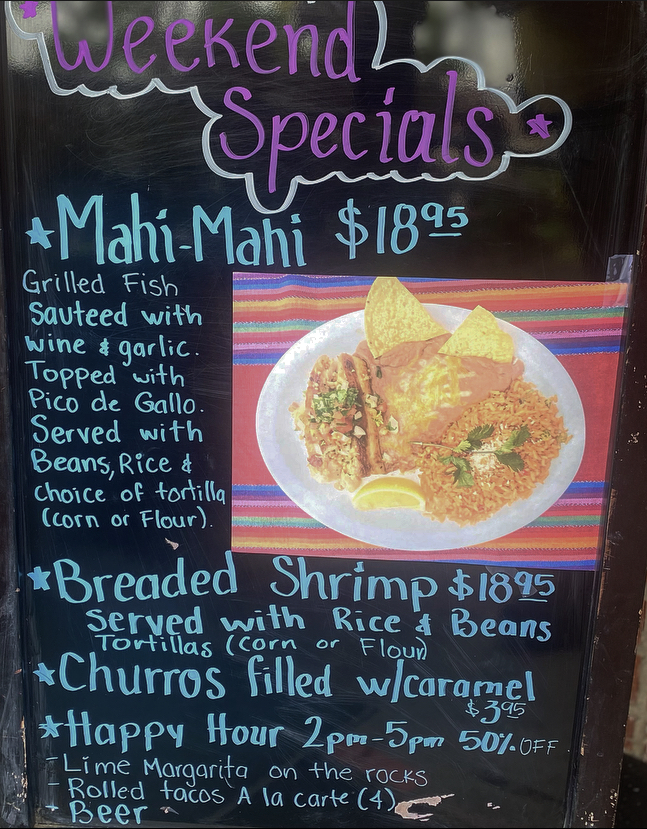 Weekend
Specials
Mahi-Mahi $18.95
Grilled Fish
Sauteed with
wine & garlic.
Topped with
Pico de Gallo.
Served with
Beans, Rice &
choice of tortilla
(corn or Flour).
Breaded Shrimp $18.95
Served with Rice & Beans
Tortillas (Corn or Flour)
Churros filled w/caramel
$3.95
Happy Hour 2pm-5pm 50% OFF
- Lime Margarita on the rocks
- Rolled tacos A la carte (4)
- Beer